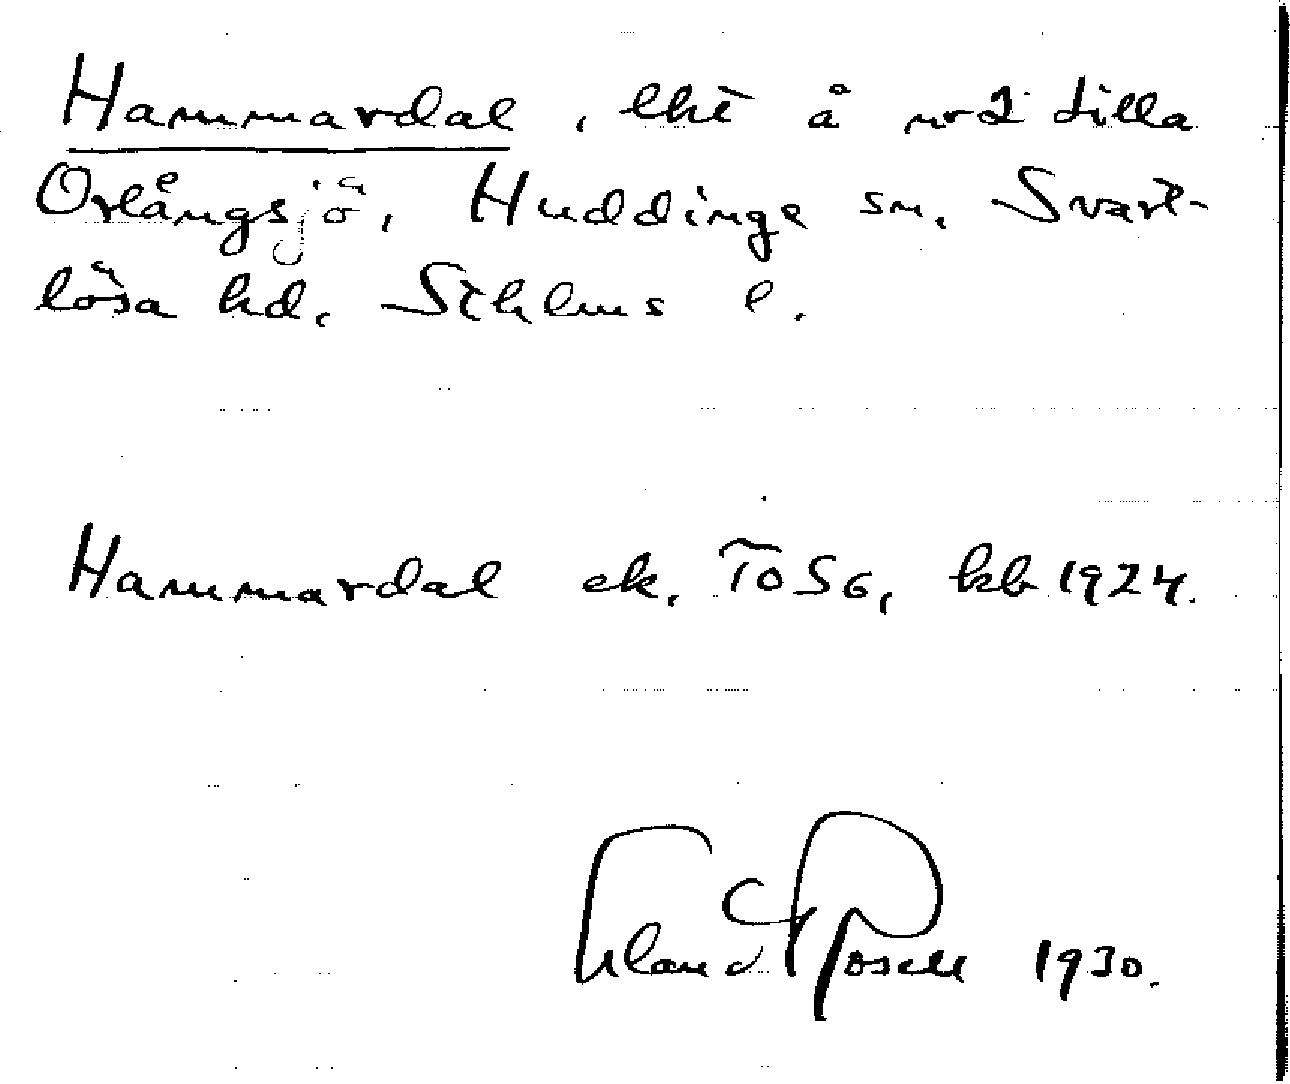 Hammardal, lht å nrd Lilla
Orlångsjö, Huddinge sn. Svart-
lösa hd. Sthlms l.
Hammardal ek. ToSG, kb 1924.
Erland Rosell 1930.